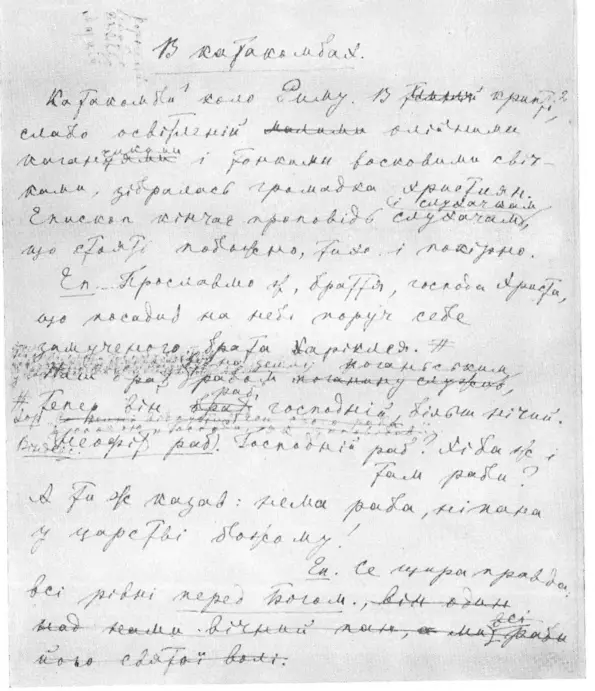 В катакомбах.
Катакомби коло Риму. В крипті,
слабо освітленій малими олійними
чиками
каганцями і тонкими восковими свіч-
ками, зібралась громадка християн.
і слухачкам
Епископ кінчає проповідь слухачам,
що стоять побожно, тихо і покірно.
Еп. Прославмо ж, браття, господа Христа,
що посадив на небі поруч себе
замученого брата Харікл́ея. #
на землі поганським
був рабом поганину служив,
раб
# Тепер він брат господній, більш нічий.
Неофіт раб. Господній раб? Хіба ж і
там раби?
А ти ж казав: нема раба, ні пана
у царстві божому!
Еп. Се щира правда:
всі рівні перед Богом., він один
всі
над нами вічний пан, а ми раби
його святої волі.